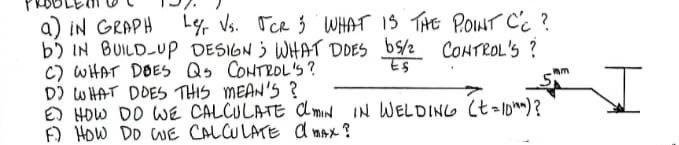 a) IN GRAPH Le/r Vs. σCR ; WHAT IS THE POINT C'c ?
b) IN BUILD-UP DESIGN ; WHAT DOES bs/2 / ts CONTROL'S ?
C) WHAT DOES Qs CONTROL'S ?
D) WHAT DOES THIS MEAN'S ? 5mm
E) HOW DO WE CALCULATE dMIN IN WELDING (t=10mm)?
F) HOW DO WE CALCULATE d MAX ?